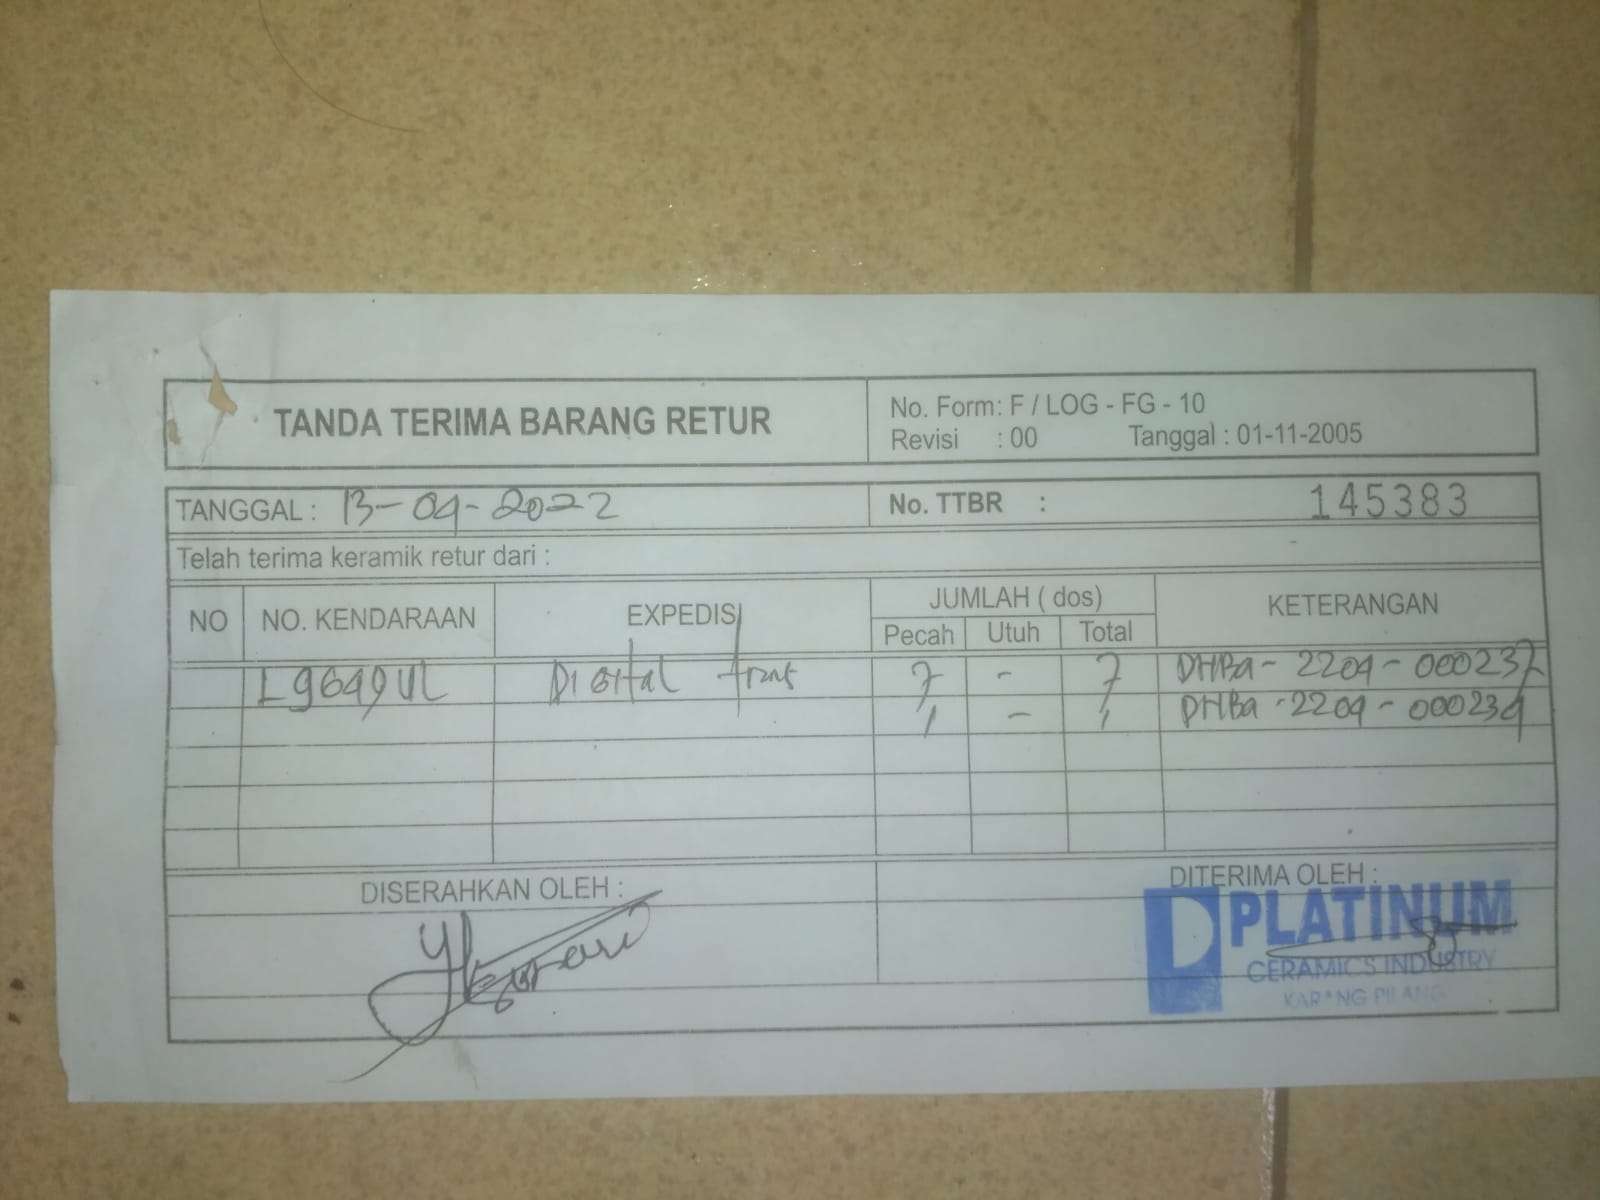 TANDA TERIMA BARANG RETUR
No. Form: F / LOG - FG - 10
Revisi : 00 Tanggal : 01-11-2005
TANGGAL : 13-09-2022
No. TTBR : 145383
Telah terima keramik retur dari :
NO NO. KENDARAAN EXPEDISI JUMLAH ( dos) KETERANGAN
Pecah Utuh Total
L9649UL Digital trans 7 - 7 DHBa - 2209 - 000237
1 - 1 DHBa - 2209 - 000239
DISERAHKAN OLEH :
DITERIMA OLEH :
PLATINUM
CERAMICS INDUSTRY
KARANG PILANG